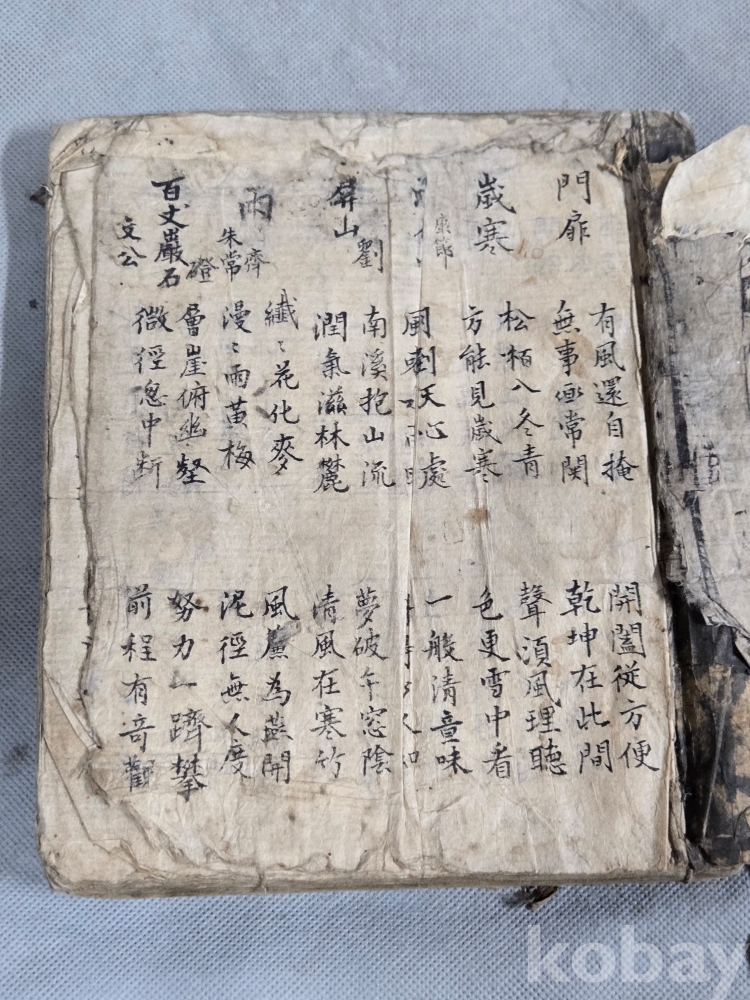 門扉
有風還自掩 開闔従方便
無事亟常関 乾坤在此間
歳寒
松栢入冬青 聲須風理聽
方能見歳寒 色更雪中看
康節
風到天心處 一般清意味
得 人知
屏山 劉
南溪抱山流 夢破午窓陰
潤氣滋林麓 清風在寒竹
雨 齊
朱常
纖〻花化麥 風簾為燕開
漫〻雨黃梅 泥徑無人度
百丈巖石磴
文公
層崖俯幽壑 努力一躋攀
微徑忽中断 前程有奇觀
kobay